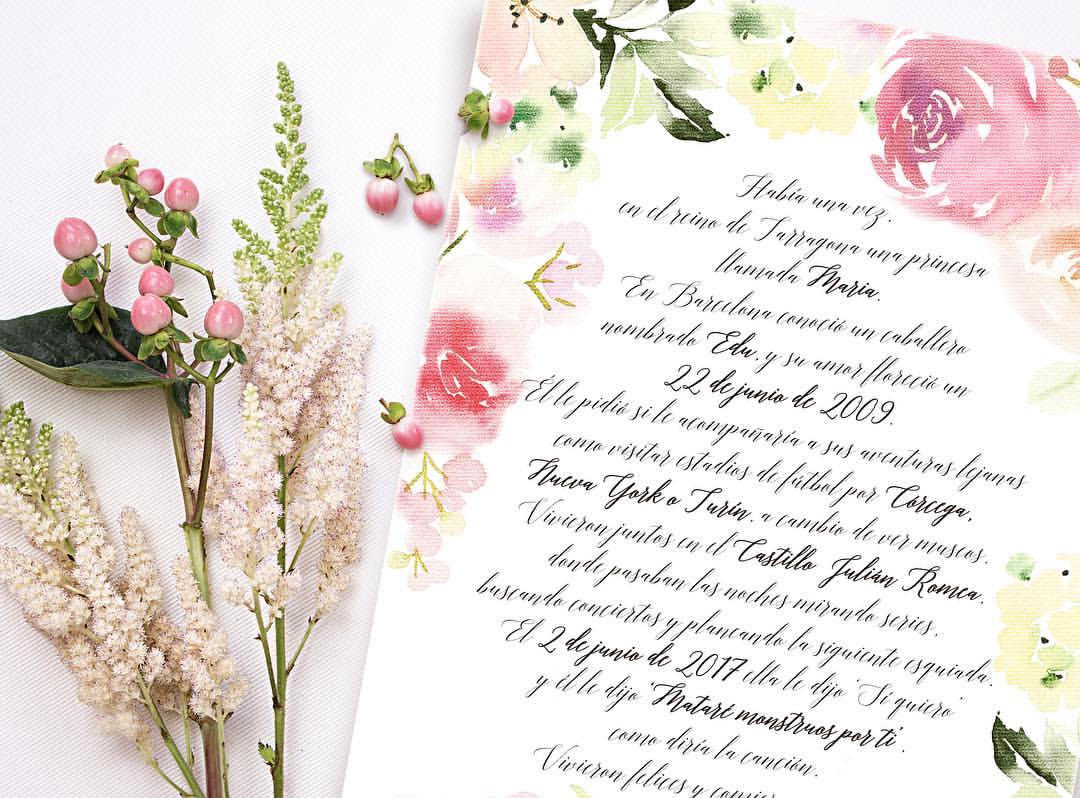 Había una vez,
en el reino de Tarragona una princesa
llamada María.
En Barcelona conoció un caballero
nombrado Edu, y su amor floreció un
22 de junio de 2009.
Él le pidió si le acompañaría a sus aventuras lejanas
como visitar estadios de fútbol por Córcega,
Nueva York o Turín, a cambio de ver museos.
Vivieron juntos en el Castillo Julián Romea,
donde pasaban las noches mirando series,
buscando conciertos y planeando la siguiente esquiada.
El 2 de junio de 2017 ella le dijo "Sí quiero"
y él le dijo "Mataré monstruos por ti",
como diría la canción.
Vivieron felices y